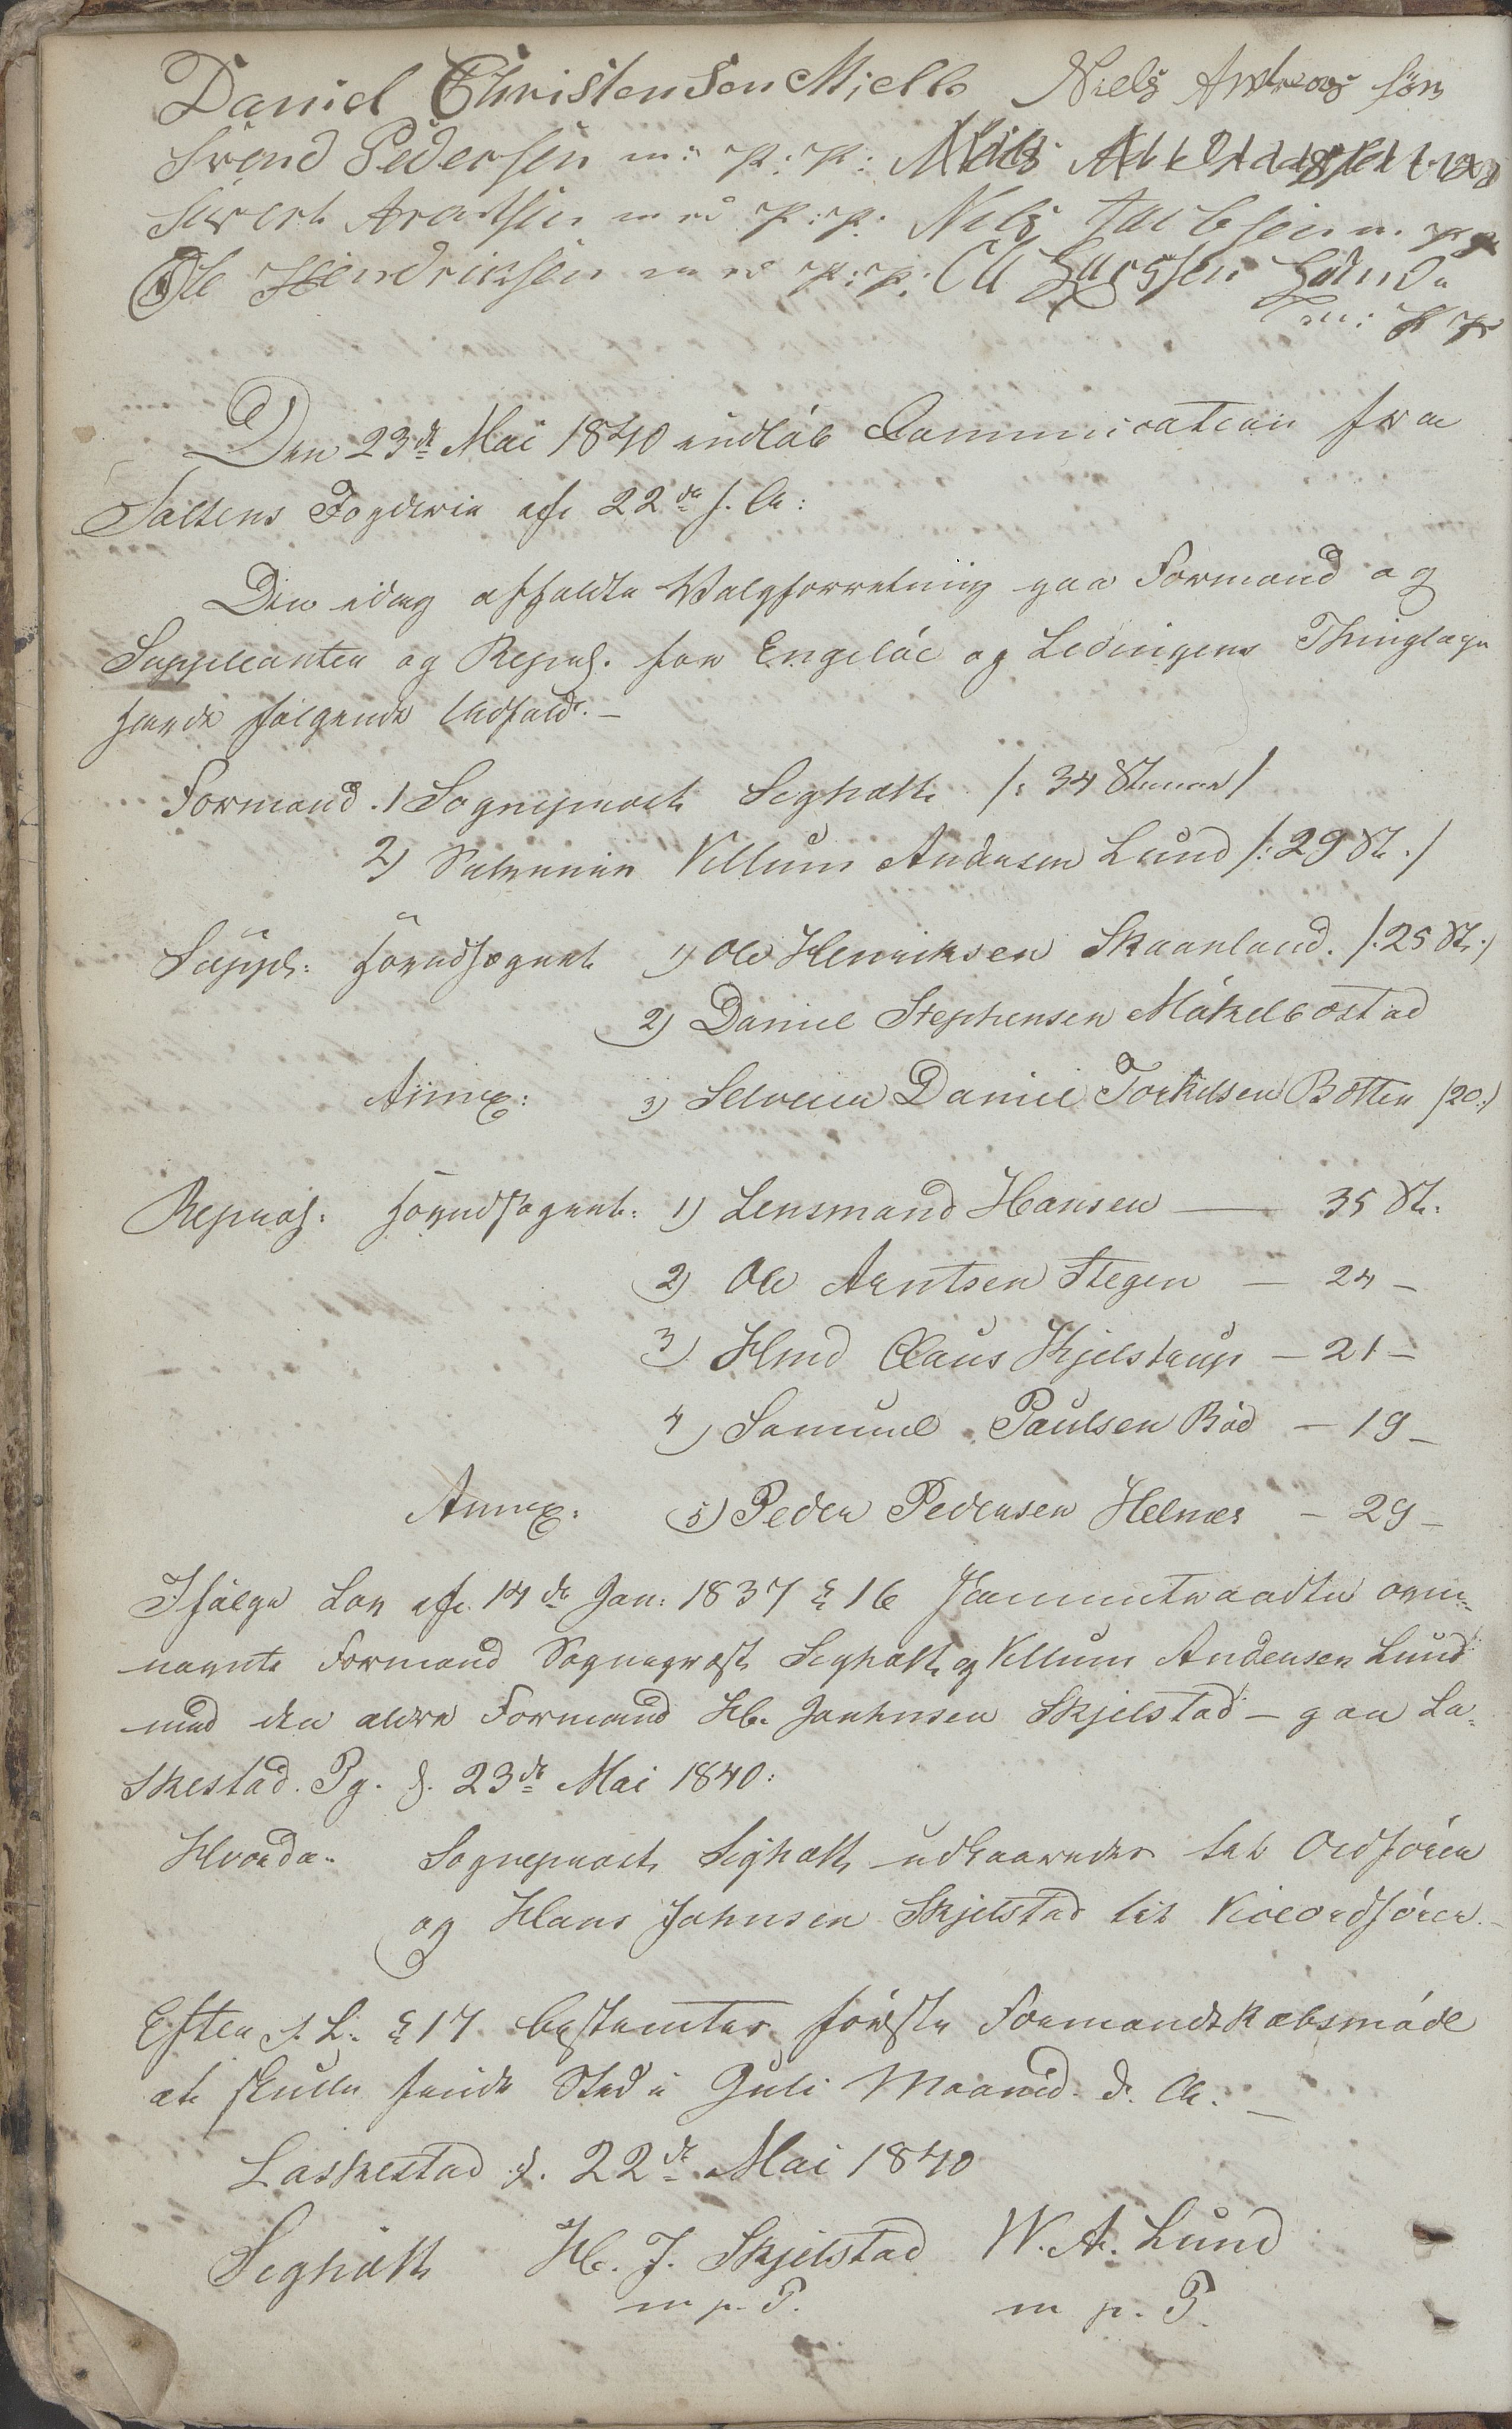 Daniel Christensen Mielle Niels Andreas søn
Svend Pedersen m: p: p:
Sivert Arentsen m p: p: Nils Jacobsen m. p p
Ole Hendriksen m p: p: Ole Larssen
m: p p
Den 23de Mai 1840 indløb Communication fra
Saltens Fogderie af 22de s. A:
Den idag afholdte Valgforretning paa Formænd og
Suppleanter og Repræs. for Engeløe og Ledingens Thinglage
havde følgende Udfald. –
Formænd. 1 Sogneprest Seghatt /: 34 Stemmer /
2) Selveier Villum Andersen Lund /: 29 St. /
Suppl: Hovedsognet 1) Ole Henriksen Skaanland. /: 25 St. /
2) Daniel Stephensen Møkelbostad
Annex: 3) Selveier Daniel Torkelsen Botten /20:/
Repræs. Hovedsognet: 1) Lensmand Hansen — 35 St.
2) Ole Arntsen Stegen — 24 –
3) Hmd Claus Kjelstrup – 21 –
4) Samuel Paulsen Bøe – 19 –
Annex. 5) Peder Pedersen Helnes – 29 –
Ifølge Lov af 14de Jan: 1837 § 16 sammentraadte oven-
nævnte Formænd Sogneprest Seghatt og Villum Andersen Lund
med den ældre Formand H. Janhnsen Skjelstad – paa La-
skestad. Pg. d. 23de Mai 1840:
Hvorda. Sogneprest Seghatt udkaaredes til Ordfører
og Hans Johnsen Skjelstad til Viceordfører. –
Efter s. L. § 17 bestemtes første Formandskabsmøde
at skulle finde Sted i Juli Maaned d. A. –
Laskestad d. 22de Mai 1840
Seghatt H. J. Skjelstad W. A. Lund
m p. P. m p. P.